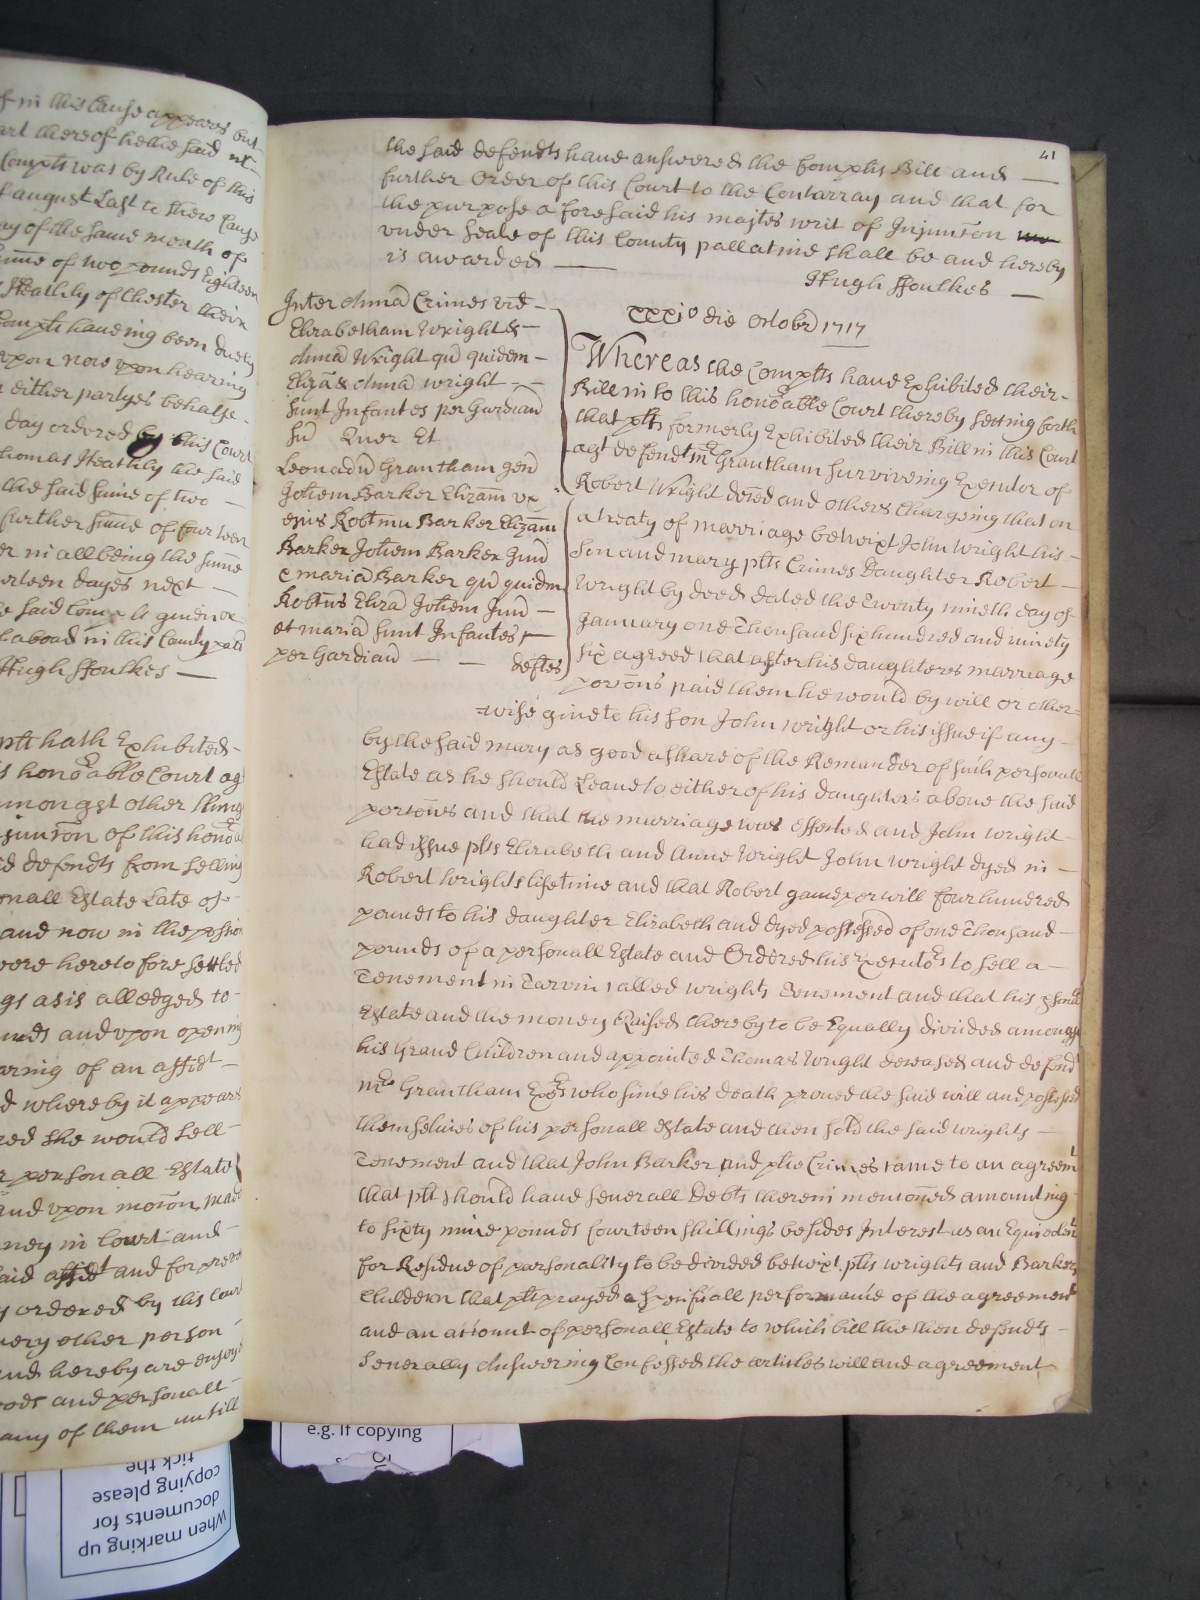 f in this Cause appears but
art thereof hethe said
Compts was by Rule of this
f august Last to shew Cause
ay of the same month of
sume of two pounds Eighteen
Heathly of Chester their
Compts haueing been duely
vpon now vpon hearing
either partyes behalfe
day ordered by this Court
homas Heathly the said
the said sume of two
further sume of fourteen
er in all being the sume
erteen dayes next
said
aboad in this County
Hugh ffoulkes
plt hath Exhibited
s honoable Court ag
mongst other things
of this
id defendts from selling
onall Estate Late of
and now in the
were heretofore settled
gs as is alledged to
and vpon opening
aring of an affidt
d whereby it appears
red she would sell
r personall Estate
and vpon motion made
ney in Court and
aid affidt and for
y ordered by this Court
uery other person
and hereby are
oods and personall
any of them untill
41
the said defendts haue answered the Complts Bill and
further Order of this Court to the Contarray and that for
the purpose aforesaid his majtes writ of Injuncon
vnder seale of this County pallatine shall be and hereby
is awarded
Hugh ffoulkes
Inter Annā Crimes vid
Elizabetham Wright &
Annā Wright qu quidem
Elizā & Annā wright
sunt Infantes per Gardian
su Quer Et
Leonadu Grantham gen
Johem Barker Elizam vx
ejus Robtmu Barker Elizam
Barker Johem Barker Jun
e maria Barker qu quidm
Robtus Eliza Johem Jun
et maria sunt Infantes
per Gardian deftes
xxxio die Octobr 1717
Whereas the Complts haue Exhibited their
Bill in to this honoable Court thereby setting forth
that plts formerly Exhibited their Bill in this Court
agt defendt mr Grantham surviveing Executor of
Robert Wright deced and others Chargeing that on
a treaty of marriage betwixt John Wright his
son and mary plts Crimes Daughter Robert
Wright by deed dated the Twenty nineth day of
January one Thousand six hundred and ninety
six agreed that after his daughteres marriage
porons paid them he would by will or other
wise giue to his son John Wright or his issue if any
by the said mary as good a share of the Remander of such personall
Estate as he should Leaue to either of his daughters aboue the said
portons and that the marriage was Effected and John wright
had issue plts Elizabeth and Anne Wright John wright dyed in
Robert Wrights lifetime and that Robert gaue per will four hundred
pounds to his daughter Elizabeth and dyed possessed of one Thousand
pounds of a personall Estate and Ordered his Executors to sell a
Tenement in Tarvin called wrights Tenement and that his psonal
Estate and the money Raised thereby to be Equally divided amongst
his Grand Children and appointed Thomas Wright deseased and defend
mr Grantham Exrs who since his death proued the said will and possesed
themselues of his personall estate and then sold the said wrights
Tenement and that John Barker and plte Crimes came to an agreemt
that plt should haue seuerall debts therein mentoned amounting
to sixty nine pounds fourteen shillings besides Interest as an Equivalent
for Residue of personality to be divided betwixt plts wrights and Barkers
Childern that plt prayed a specificall performance of the agreement
and an account of personall Estate to which bill the then defendts
Seuerally Answering Confessed the articles will and agreement
e.g. If copying
When marking up
documents for
copying please
tick the